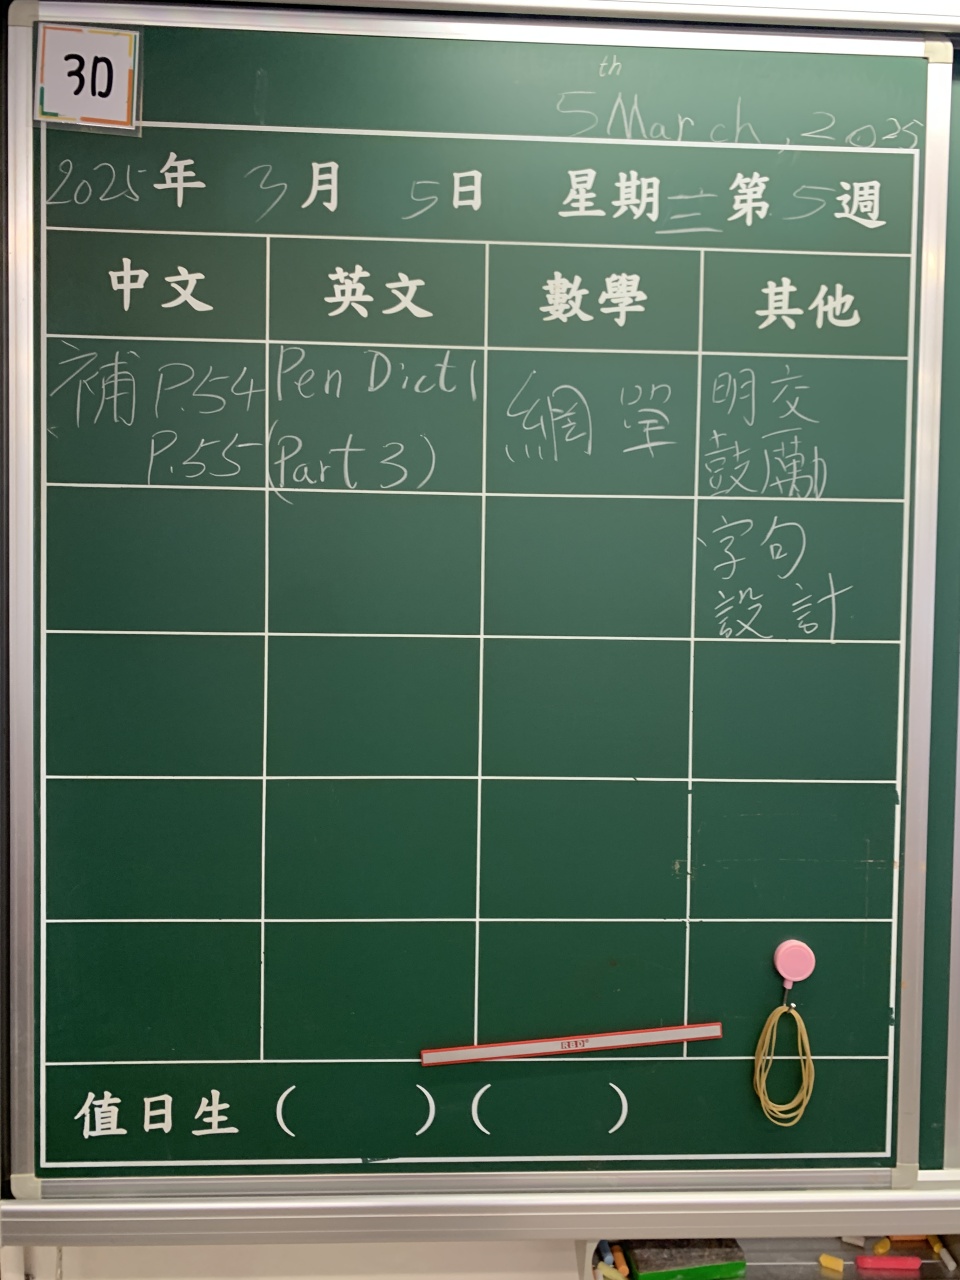 3D
5th March, 2025
2025年 3月 5日 星期三 第5週
中文 英文 數學 其他
補 P.54 Pen Dict 1 網單 明交
P.55 (Part 3) 鼓勵
字句
設計
RBD
值日生 ( ) ( )